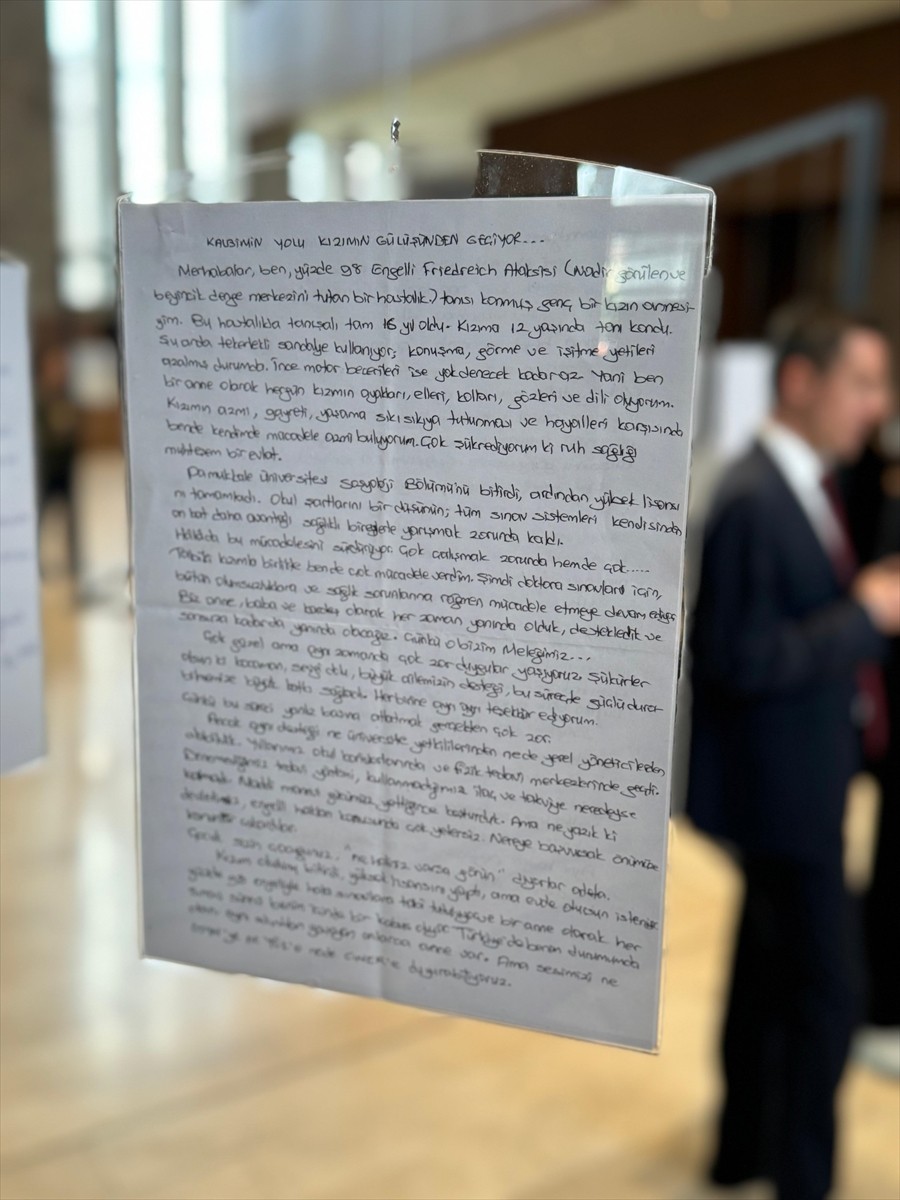 KALBİMİN YOLU KIZIMIN GÜLÜŞÜNDEN GEÇİYOR...
Merhabalar, ben, yüzde 98 Engelli Friedreich Ataksisi (Nadir görülen ve
beyincik denge merkezini tutan bir hastalık.) tanısı konmuş genç bir kızın annesi-
yim. Bu hastalıkla tanışalı tam 16 yıl oldu. Kızıma 12 yaşında tanı kondu.
Şu anda tekerlekli sandalye kullanıyor; konuşma, görme ve işitme yetileri
azalmış durumda. İnce motor becerileri ise yok denecek kadar az. Yani ben
bir anne olarak hergün kızımın ayakları, elleri, kolları, gözleri ve dili oluyorum.
Kızımın azmi, gayreti, yaşama sıkı sıkıya tutunması ve hayalleri karşısında
bende kendimde mücadele azmi buluyorum. Çok şükrediyorum ki ruh sağlığı
muhteşem bir evlat.
Pamukkale üniversitesi Sosyoloji Bölümünü bitirdi, ardından yüksek lisansı
nı tamamladı. Okul şartlarını bir düşünün; tüm sınav sistemleri kendisinden
on kat daha avantajlı sağlıklı bireylerle yarışmak zorunda kaldı.
Halada bu mücadelesini sürdürüyor. Çok çalışmak zorunda hemde çok.....
Tabiki kızımla birlikte bende çok mücadele verdim. Şimdi doktora sınavları için,
bütün olumsuzluklara ve sağlık sorunlarına rağmen mücadele etmeye devam ediyor
Biz anne, baba ve kardeş olarak her zaman yanında olduk, destekledik ve
sonsuza kadarda yanında olacağız. Çünkü o bizim Meleğimiz...
Çok güzel ama aynı zamanda çok zor duygular yaşıyoruz. Şükürler
olsun ki kocaman, sevgi dolu, büyük ailemizin desteği, bu süreçte güçlü dura-
bilmemize büyük katkı sağladı. Herbirine ayrı ayrı teşekkür ediyorum.
Çünkü bu süreci yanlız başına atlatmak gerçekten çok zor.
Ancak aynı desteği ne üniversite yetkililerinden nede yerel yöneticilerden
alabildik. Yıllarımız okul koridorlarında ve fizik tedavi merkezlerinde geçti.
Denemediğimiz tedavi yöntemi, kullanmadığımız ilaç ve takviye neredeyse
kalmadı. Maddi manevi gücümüz yettiğince koşturduk. Ama ne yazık ki
devletimiz, engelli hakları konusunda çok yetersiz. Nereye başvursak önümüze
kanunlar çıkardılar.
Çocuk sizin çocuğunuz, "ne haliniz varsa görün" diyorlar adeta.
Kızım okulunu bitirdi, yüksek lisansını yaptı, ama evde otursun isteniyor
yüzde 98 engeliyle hala sınavlara tabi tutuluyor ve bir anne olarak her
sınav süreci benim için bir kabus oluyor. Türkiye'de benim durumumda
olan aynı sıkıntıları yaşayan onlarca anne var. Ama sesimizi ne
ne YÖK'e nede CİMER'e duyurabiliyoruz.